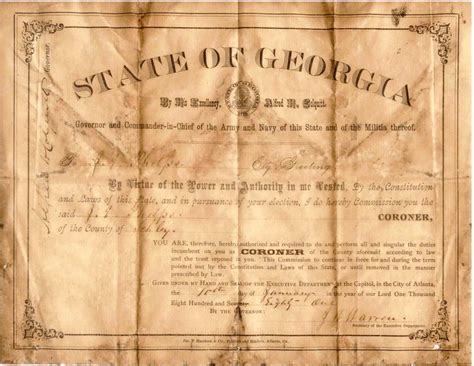 STATE OF GEORGIA
By His Excellency, Alfred H. Colquitt,
Governor and Commander-in-Chief of the Army and Navy of this State and of the Militia thereof.
Greeting
By Virtue of the Power and Authority in me Vested, By the Constitution
and Laws of this State, and in pursuance of your election, I do hereby Commission you the
said CORONER,
of the County of
YOU ARE, therefore, hereby authorized and required to do and perform all and singular the duties
incumbent on you as CORONER of the County aforesaid according to law
and the trust reposed in you. This Commission to continue in force for and during the term
pointed out by the Constitution and Laws of this State, or until removed in the manner
prescribed by Law.
GIVEN UNDER MY HAND and SEAL OF THE EXECUTIVE DEPARTMENT at the Capitol, in the City of Atlanta,
the day of January in the year of our Lord One Thousand
Eight Hundred and Eighty One
BY THE GOVERNOR:
Warren
Secretary of the Executive Department.